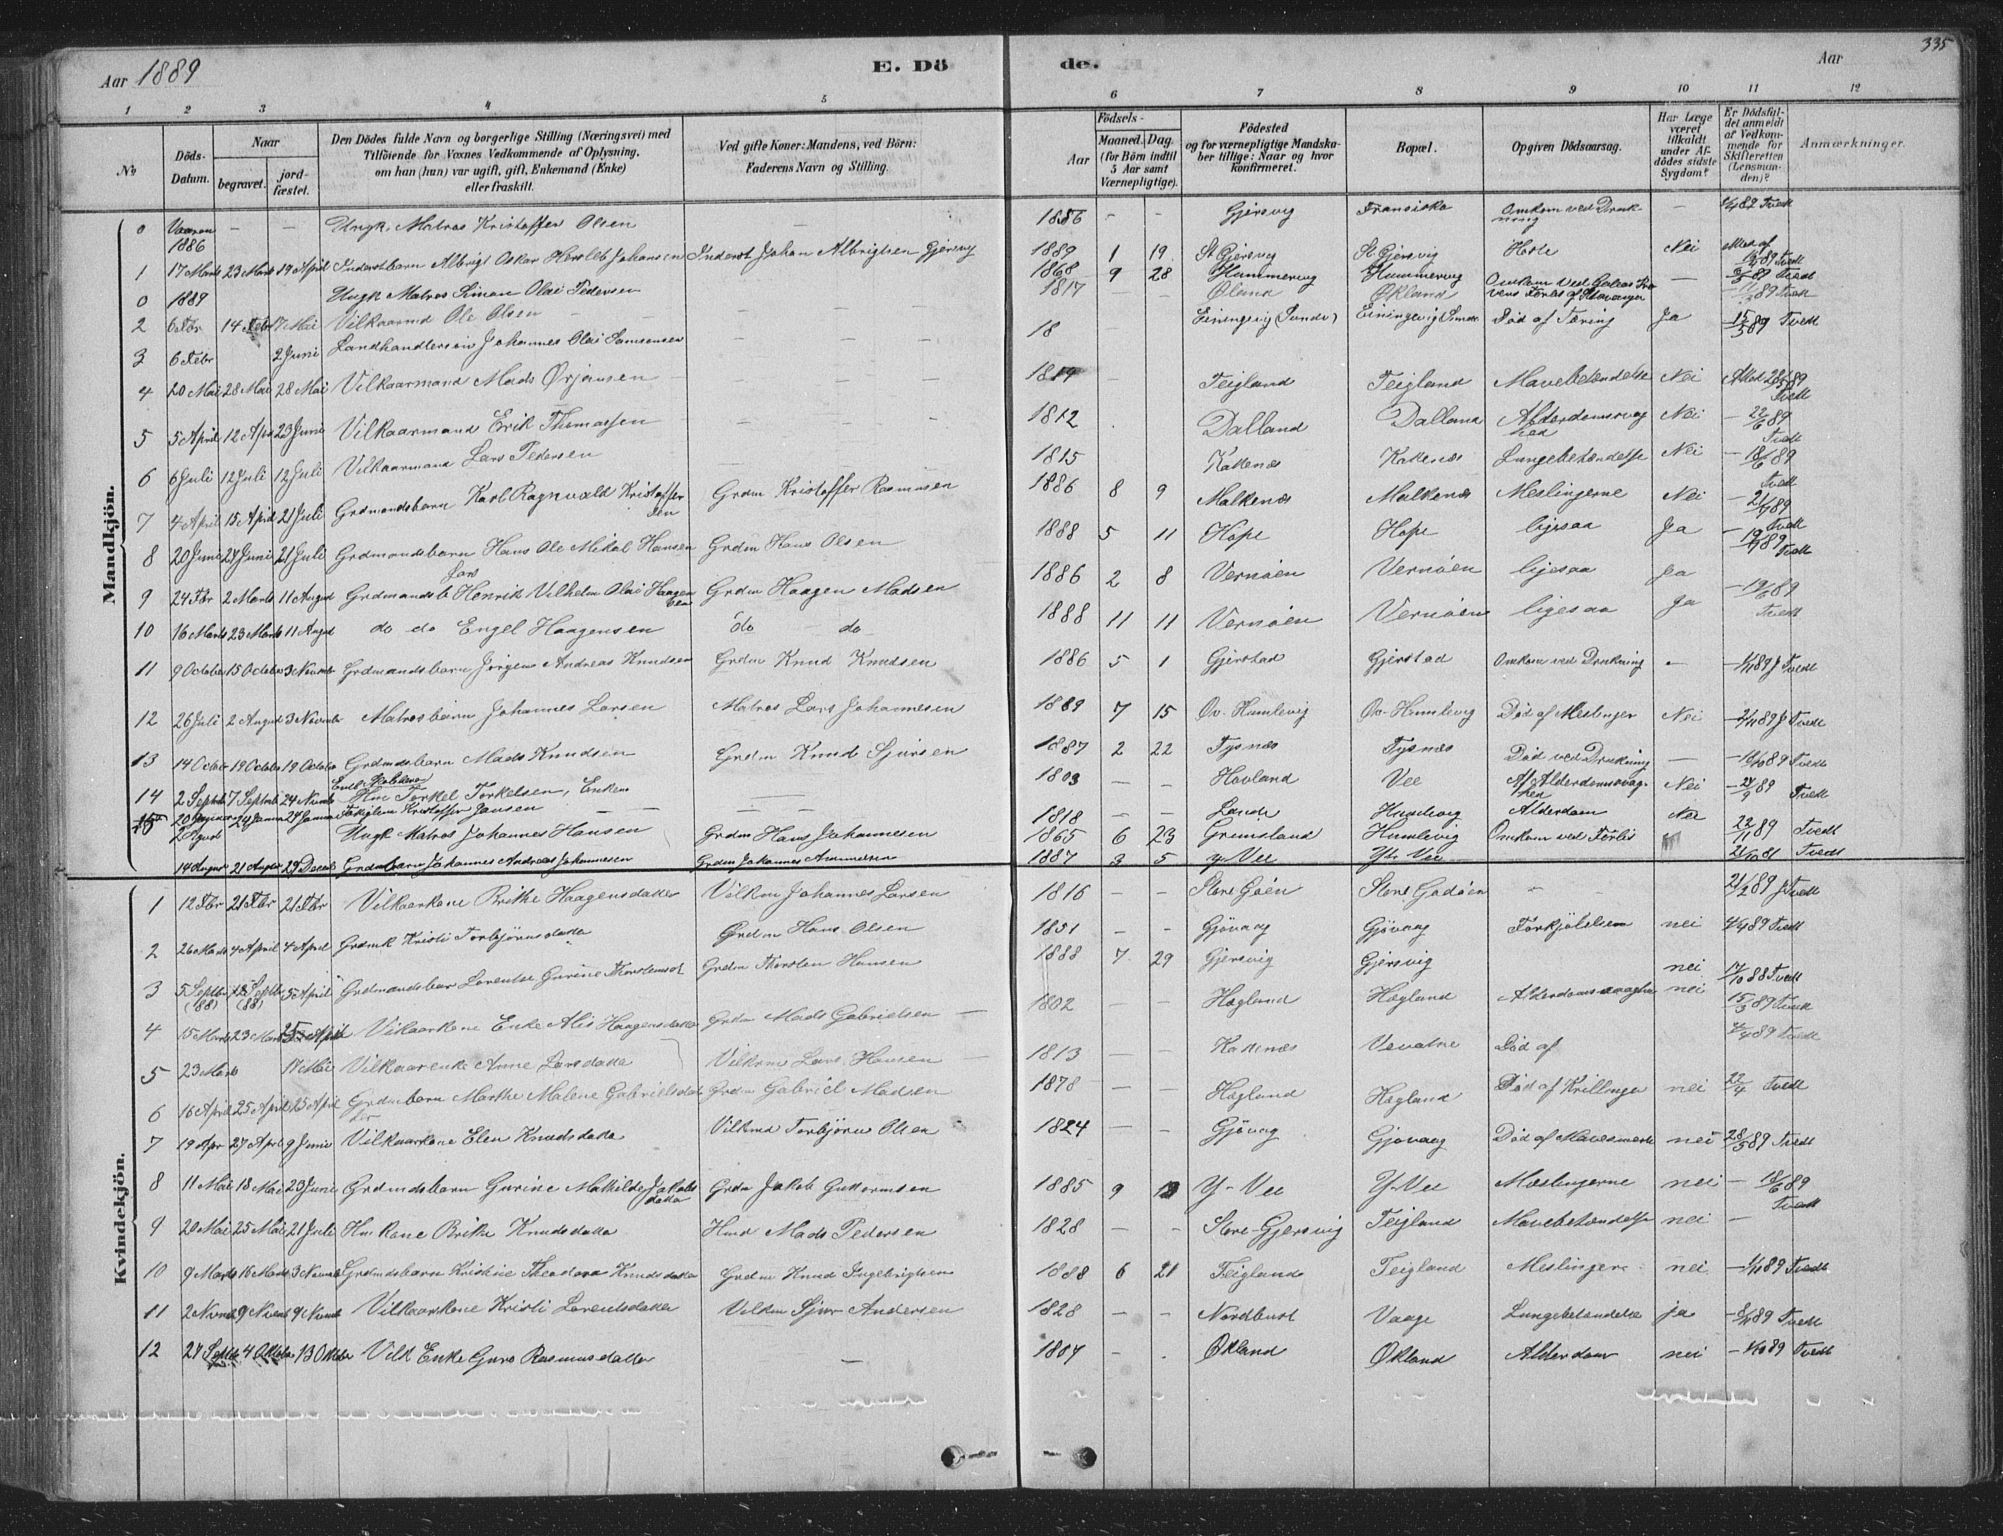 335
Aar 1889
E. Dö
de.
Aar
1 2 3 4 5 6 7 8 9 10 11 12
No
Döds-Datum.
Naar
begravet.
jord-fæstet.
Den Dödes fulde Navn og borgerlige Stilling (Næringsvei) med
Tilföiende for Voxnes Vedkommende af Oplysning,
om han (hun) var ugift, gift, Enkemand (Enke)
eller fraskilt.
Ved gifte Koner: Mandens, ved Börn:
Faderens Navn og Stilling.
Födsels-
Aar
Maaned. Dag.
(for Börn indtil
5 Aar samt
Værnepligtige).
Födested
og for værnepligtige Mandska-
ber tillige: Naar og hvor
konfirmeret.
Bopæl.
Opgiven Dödsaarsag.
Har Læge
været
tilkaldt
under Af-
dödes sidste
Sygdom?
Er Dödsfal-
det anmeldt
af Vedkom-
mende for
Skifteretten
(Lensman-
den)?
Anmærkninger.
Mandkjön.
0 Vaaren 1886 — — Ungk Matros Kristoffer Olsen 1886 — — Gjersvig Fransiska Omkom ved Drukning — Tvedt
1 17 Marts 23 Marts 19 April Inderstbarn Albrigt Oskar Hersleb Johansen Inderst Johan Albrigtsen Gjersvig 1889 1 19 St Gjersvig St Gjersvig Hoste Nei Tvedt
0 1889 Ungk Matros Simon Olai Pedersen 1868 9 28 Hummervig Hummervig Omkom ved — Tvedt
2 6 Febr 14 Febr 17 Mai Vilkaarmd Ole Olsen — 1817 — — Øland Økland Tvedt
3 6 Febr 2 Juni Landhandlersøn Johannes Olai Samsonsen — 18 Død af Tæring Ja 15/5 89 Tvedt
4 20 Mai 28 Mai 28 Mai Vilkaarmand Mads Ørjansen — 1819 — Teigland Teigland Mavebetændelse Nei Tvedt
5 5 April 12 April 23 Juni Vilkaarmand Erik Thomassen — 1812 Dalland Dalland Alderdomssvaghed Nei — 22/6 89 Tvedt
6 6 Juli 12 Juli 12 Juli Vilkaarmand Lars Pedersen — 1815 Kattenæs Kattenæs Lungebetændelse Nei — 18/6 89 Tvedt
7 4 April 15 April 21 Juli Grdmandsbarn Karl Ragnvald Kristoffersen Grdm Kristoffer Rasmusen 1886 8 9 Malkenæs Malkenæs Meslingerne Nei — 21/7 89 Tvedt
8 20 Juni 27 Juni 21 Juli Grdmandsbarn Hans Ole Mikal Hansen Grdm Hans Olsen 1888 5 11 Hope Hope ligesaa Ja Tvedt
9 24 Fbr 2 Marts 11 August Grdmandsb Henrik Lars Vilhelm Olai Haagensen Grdm Haagen Madsen 1886 2 8 Vernøen Vernøen ligesaa Ja
10 16 Marts 23 Marts 11 August do do Engel Haagensen do do 1888 11 11 Vernøen Vernøen ligesaa Ja Tvedt
11 9 October 15 October 3 Novemb Grdmandsbarn Jørgen Andreas Knudsen Grdm Knud Knudsen 1886 5 1 Gjerstad Gjerstad Omkom ved Drukning — Tvedt
12 26 Juli 2 August 3 Novemb Matros barn Johannes Larsen Matros Lars Johannesen 1889 7 15 Ov. Humlevig Ov. Humlevig Død af Meslinger Nei Tvedt
13 14 Octobr 19 Octobr 19 Octobr Grdmdsbarn Mads Knudsen Grdm Knud Sjursen 1887 2 22 Tysnæs Tysnæs Død ved Drukning — Tvedt
14 2 Septbr 7 Septemb 24 Novmb Hm Torkel Torkelsen, Enkem — 1803 — — Hovland Vee Af Alderdomssvaghed Nei Tvedt
15 20 Januar 24 Januar 24 Januar Fattiglem Kristoffer Jansen — 1818 — — Lande Alderdom Nei Tvedt
2 August Ungk Matros Johannes Hansen Grdm Hans Johannesen 1865 6 23 Grimsland Humlevig Omkom ved Forlis
14 August 21 August 29 Decemb Grdbarn Johannes Andreas Johannesen Grdm Johannes 1887 3 5 Y Vee Yt Vee Tvedt
Kvindekjön.
1 12 Fbr 21 Fbr 21 Fbr Vilkaarkone Brithe Haagensdatter Vilkm Johannes Larsen 1816 — — Store Godøen — 21/2 89 Tvedt
2 26 Marts 4 April 4 April Grdmk Kristi Torbjørnsdatter Grdm Hans Olsen 1851 — — Gjøvaag Gjøvaag Forkjølelsen nei 4/4 89 Tvedt
3 5 Septbr (88) 12 Septbr (88) 5 April Grdmandsbar Lorentse Gurine Thorstensd Grdm Thorsten Hansen 1888 7 29 Gjersvig Gjersvig nei 17/10 88 Tvedt
4 15 Marts 23 Marts 25 April Vilkaarkone Enke Alis Haagensdatter Grdm Mads Gabrielsen — 1802 Høgland Høgland Alderdomssvaghed nei 15/3 89 Tvedt
5 23 Marts 17 Mai Vilkaarenke Anne Larsdatter Vilkm Lars Hansen — 1813 — — Kattenæs Død af 4/4 89 Tvedt
6 16 April 25 April 25 April Grdm barn Marthe Malene Gabrielsdatter Grdm Gabriel Madsen 1878 — — Høgland Høgland Død af Krillinger nei 22/4 Tvedt
7 19 Apr 27 April 9 Juni Vilkaarkone Elen Knudsdatter Vilkmd Torbjørn Olsen 1824 — — Gjøvaag Gjøvaag Død af Mavesmerte nei 28/5 89 Tvedt
8 11 Mai 18 Mai 23 Juni Grdmdsbarn Gurine Mathilde Jakobsdatter Grdm Jakob Guttormsen 1885 9 Y-Vee Y-Vee Meslingerne nei — 18/6 89 Tvedt
9 20 Mai 25 Mai 21 Juli Hm kone Brithe Knudsdatter Hmd Mads Pedersen 1828 — — Store-Gjersvig Teigland Mavebetændelse nei —
10 9 Marts 16 Marts 3 Novmb Grdmdsbarn Kristine Theodora Knudsdatter Grdm Knud Ingebrigtsen 1888 6 21 Teigland Teigland Meslingerne nei Tvedt
11 2 Novmb 9 Novmb 9 Novmb Vilkaarkone Kristi Lorentsdatter Vilkm Sjur Andersen 1828 — — Nordbust Vaage Lungebetændelse ja Tvedt
12 27 Septbr 4 Oktober 13 Oktober Vilk Enke Guro Rasmusdatter — 1807 — Økland Økland Alderdom nei Tvedt